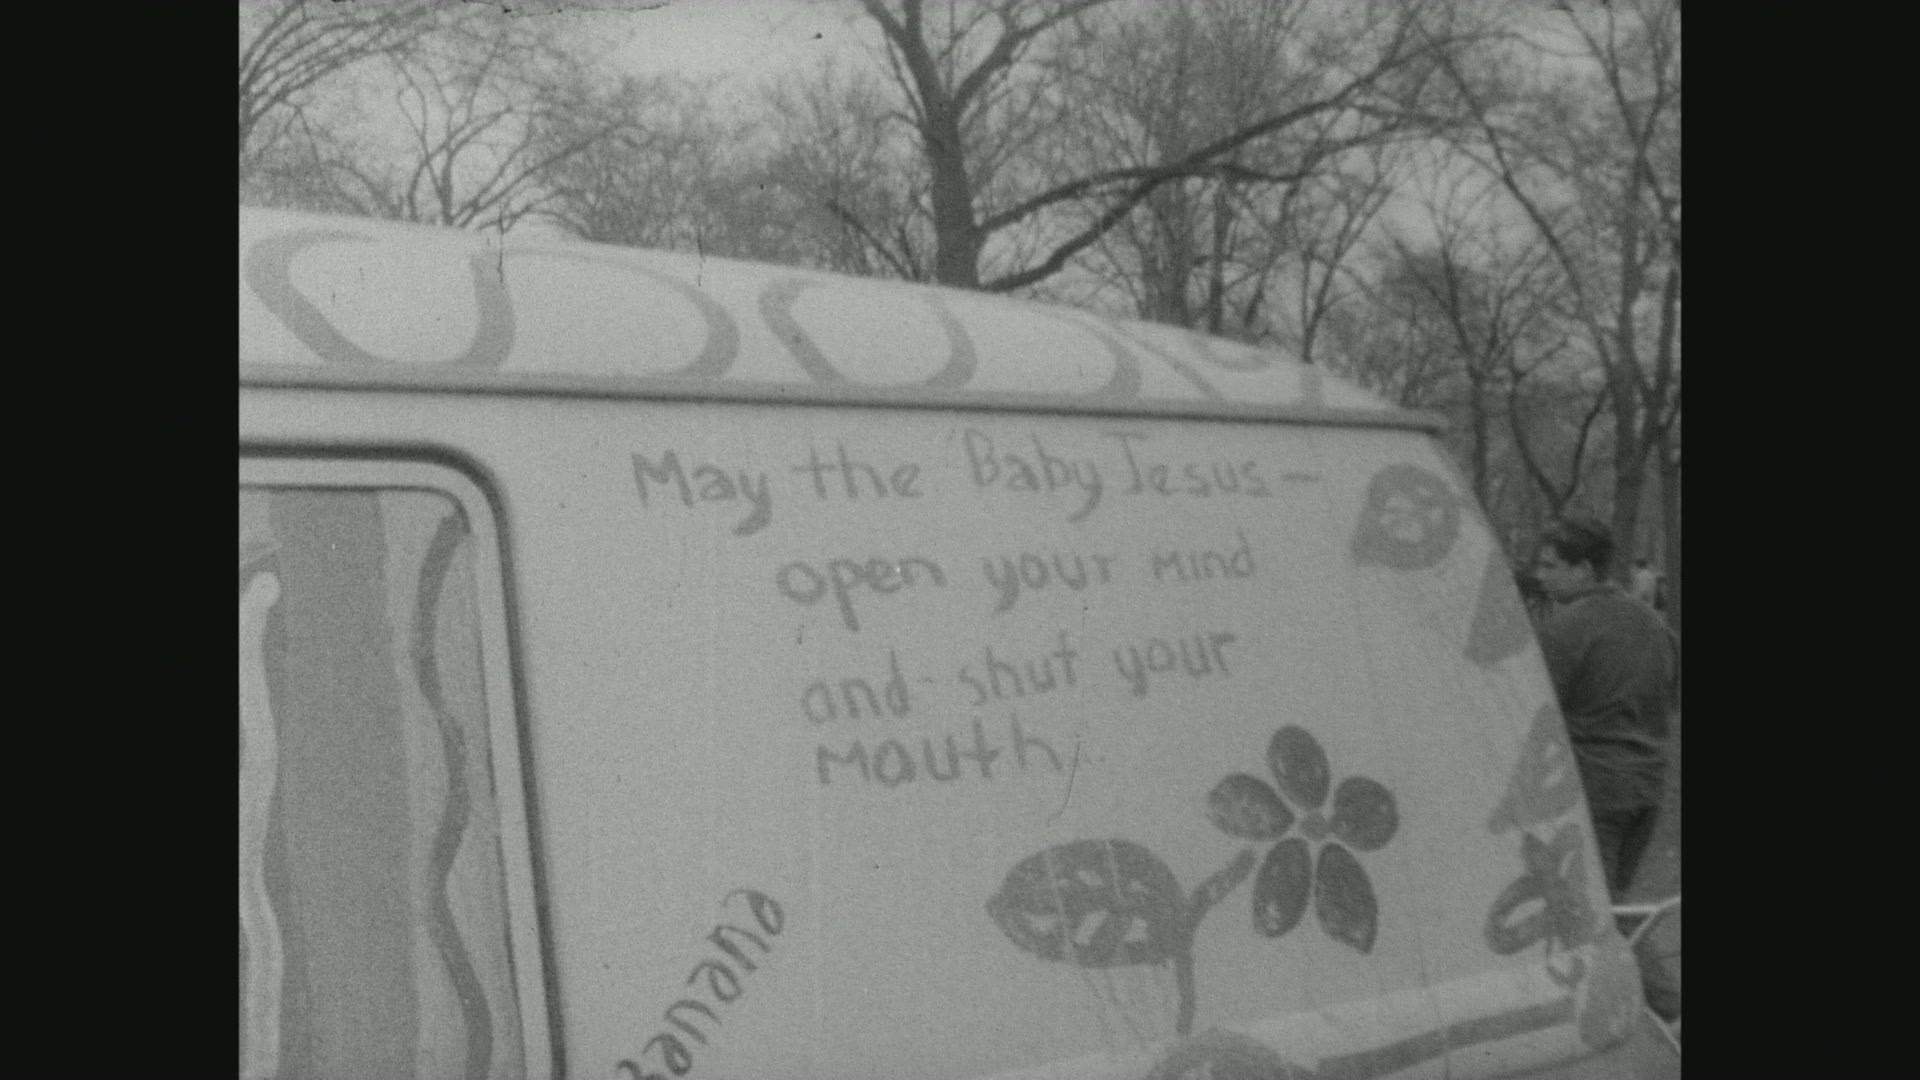 May the Baby Jesus -
open your mind
and shut your
mouth
banana